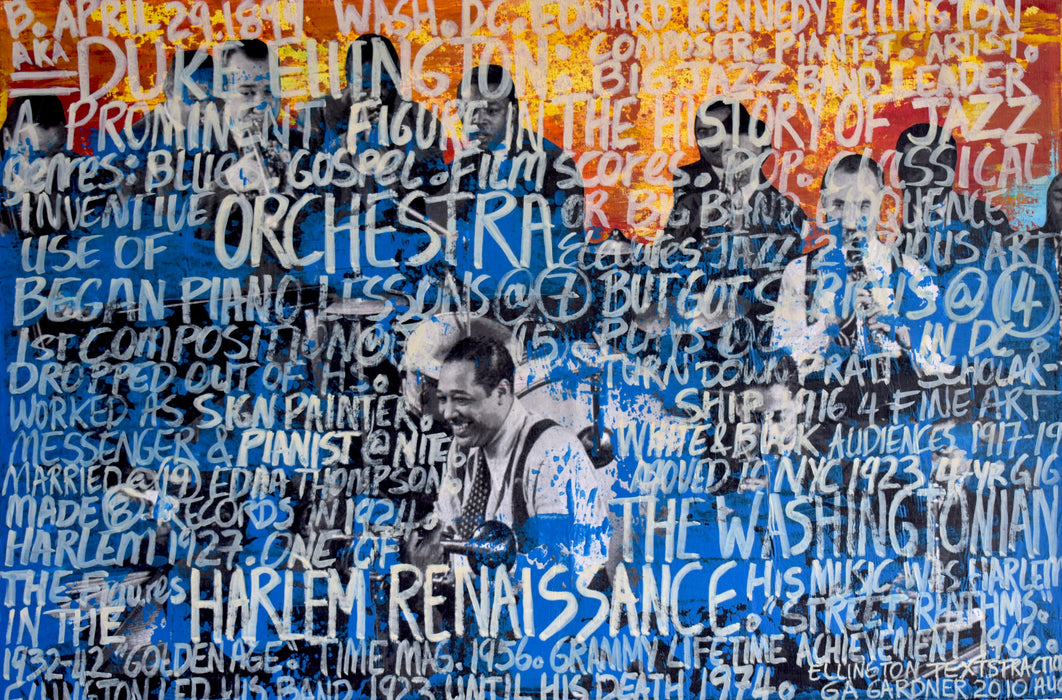 B. APRIL 29.1899 WASH. DC. EDWARD KENNEDY ELLINGTON
AKA DUKE ELLINGTON: COMPOSER. PIANIST. ARTIST.
BIG JAZZ BAND LEADER
A PROMINENT FIGURE IN THE HISTORY OF JAZZ
genres: BLUES. GOSPEL. FILM scores. POP. CLASSICAL
INVENTIVE ORCHESTRA OR BIG BAND ELOQUENCE
USE OF ELEVATES JAZZ 2 SERIOUS ART
BEGAN PIANO LESSONS @ 7 BUT GOT SERIOUS @ 14
1ST COMPOSITION @ 15 IN DC.
DROPPED OUT OF HS. TURN DOWN PRATT SCHOLAR-
WORKED AS SIGN PAINTER. SHIP 1916 4 FINE ART
MESSENGER & PIANIST @ NITE. WHITE & BLACK AUDIENCES 1917-19
MARRIED @ 19 EDNA THOMPSON. MOVED 2 NYC 1923. 4-YR GIG
MADE 8 RECORDS IN 1924. THE WASHINGTONIAN
HARLEM 1927. ONE OF
THE Figures HARLEM RENAISSANCE. HIS MUSIC WAS HARLEM
IN THE "STREET RHTHMS.
1932-42 "GOLDEN AGE. TIME MAG. 1956. GRAMMY LIFETIME ACHIEVEMENT 1966.
ELLINGTON LED HIS BAND 1923 UNTIL HIS DEATH 1974.
ELLINGTON TEXTSTRACTIO
GA GARDNER 2010 AU